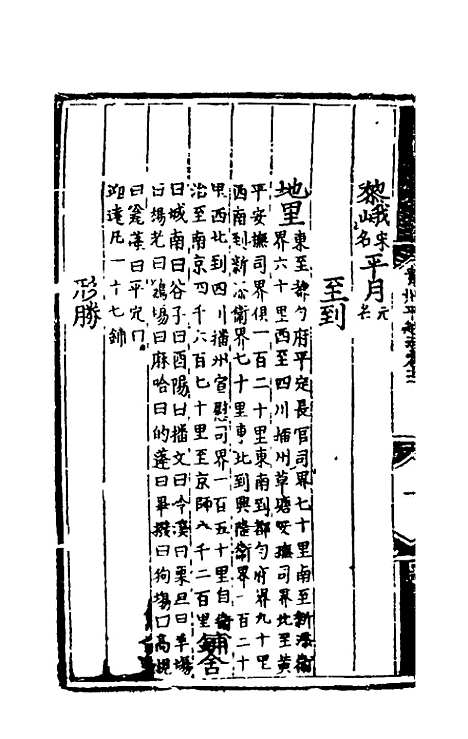 黎峨宋名平月元名
至到
地里東至都勻府平定長官司界七十里南至新添衛
界六十里西至四川播州草塘安撫司界北至黃
平安撫司界俱一百二十里東南到都勻府界九十里
西南到新添衛界七十里東北到興隆衛界一百二十
里西北到四川播州宣慰司界一百五十里自衛
治至南京四千六百七十里至京師八千二百里
鋪舍
曰城南曰谷子曰酉陽曰播文曰今溪曰栗旦曰羊場
曰楊老曰鷄場曰麻哈曰的蓬曰畢撥曰狗場曰高梘
曰瓮蓬曰平定曰
迎達凡一十七鋪
形勝